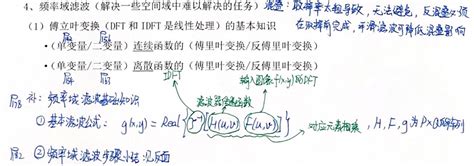 4、频率域滤波（解决一些空间域中难以解决的任务）混叠：取样率太粗导致，无法避免，反混叠必须
在取样前完成，平滑滤波可降低混叠影响
（1）傅立叶变换（DFT 和 IDFT 是线性处理）的基本知识
•（单变量/二变量）连续函数的（傅里叶变换/反傅里叶变换）
•（单变量/二变量）离散函数的（傅里叶变换/反傅里叶变换）
IDFT
输入图像f(x,y)的DFT
补：频率域滤波基础知识
滤波器传递函数
①基本滤波公式：g(x,y) = Real{𝓕⁻¹[H(u,v) F(u,v)]}
对应元素相乘，H, F, g为P×Q的阵列
②频率域滤波步骤小结：见后面